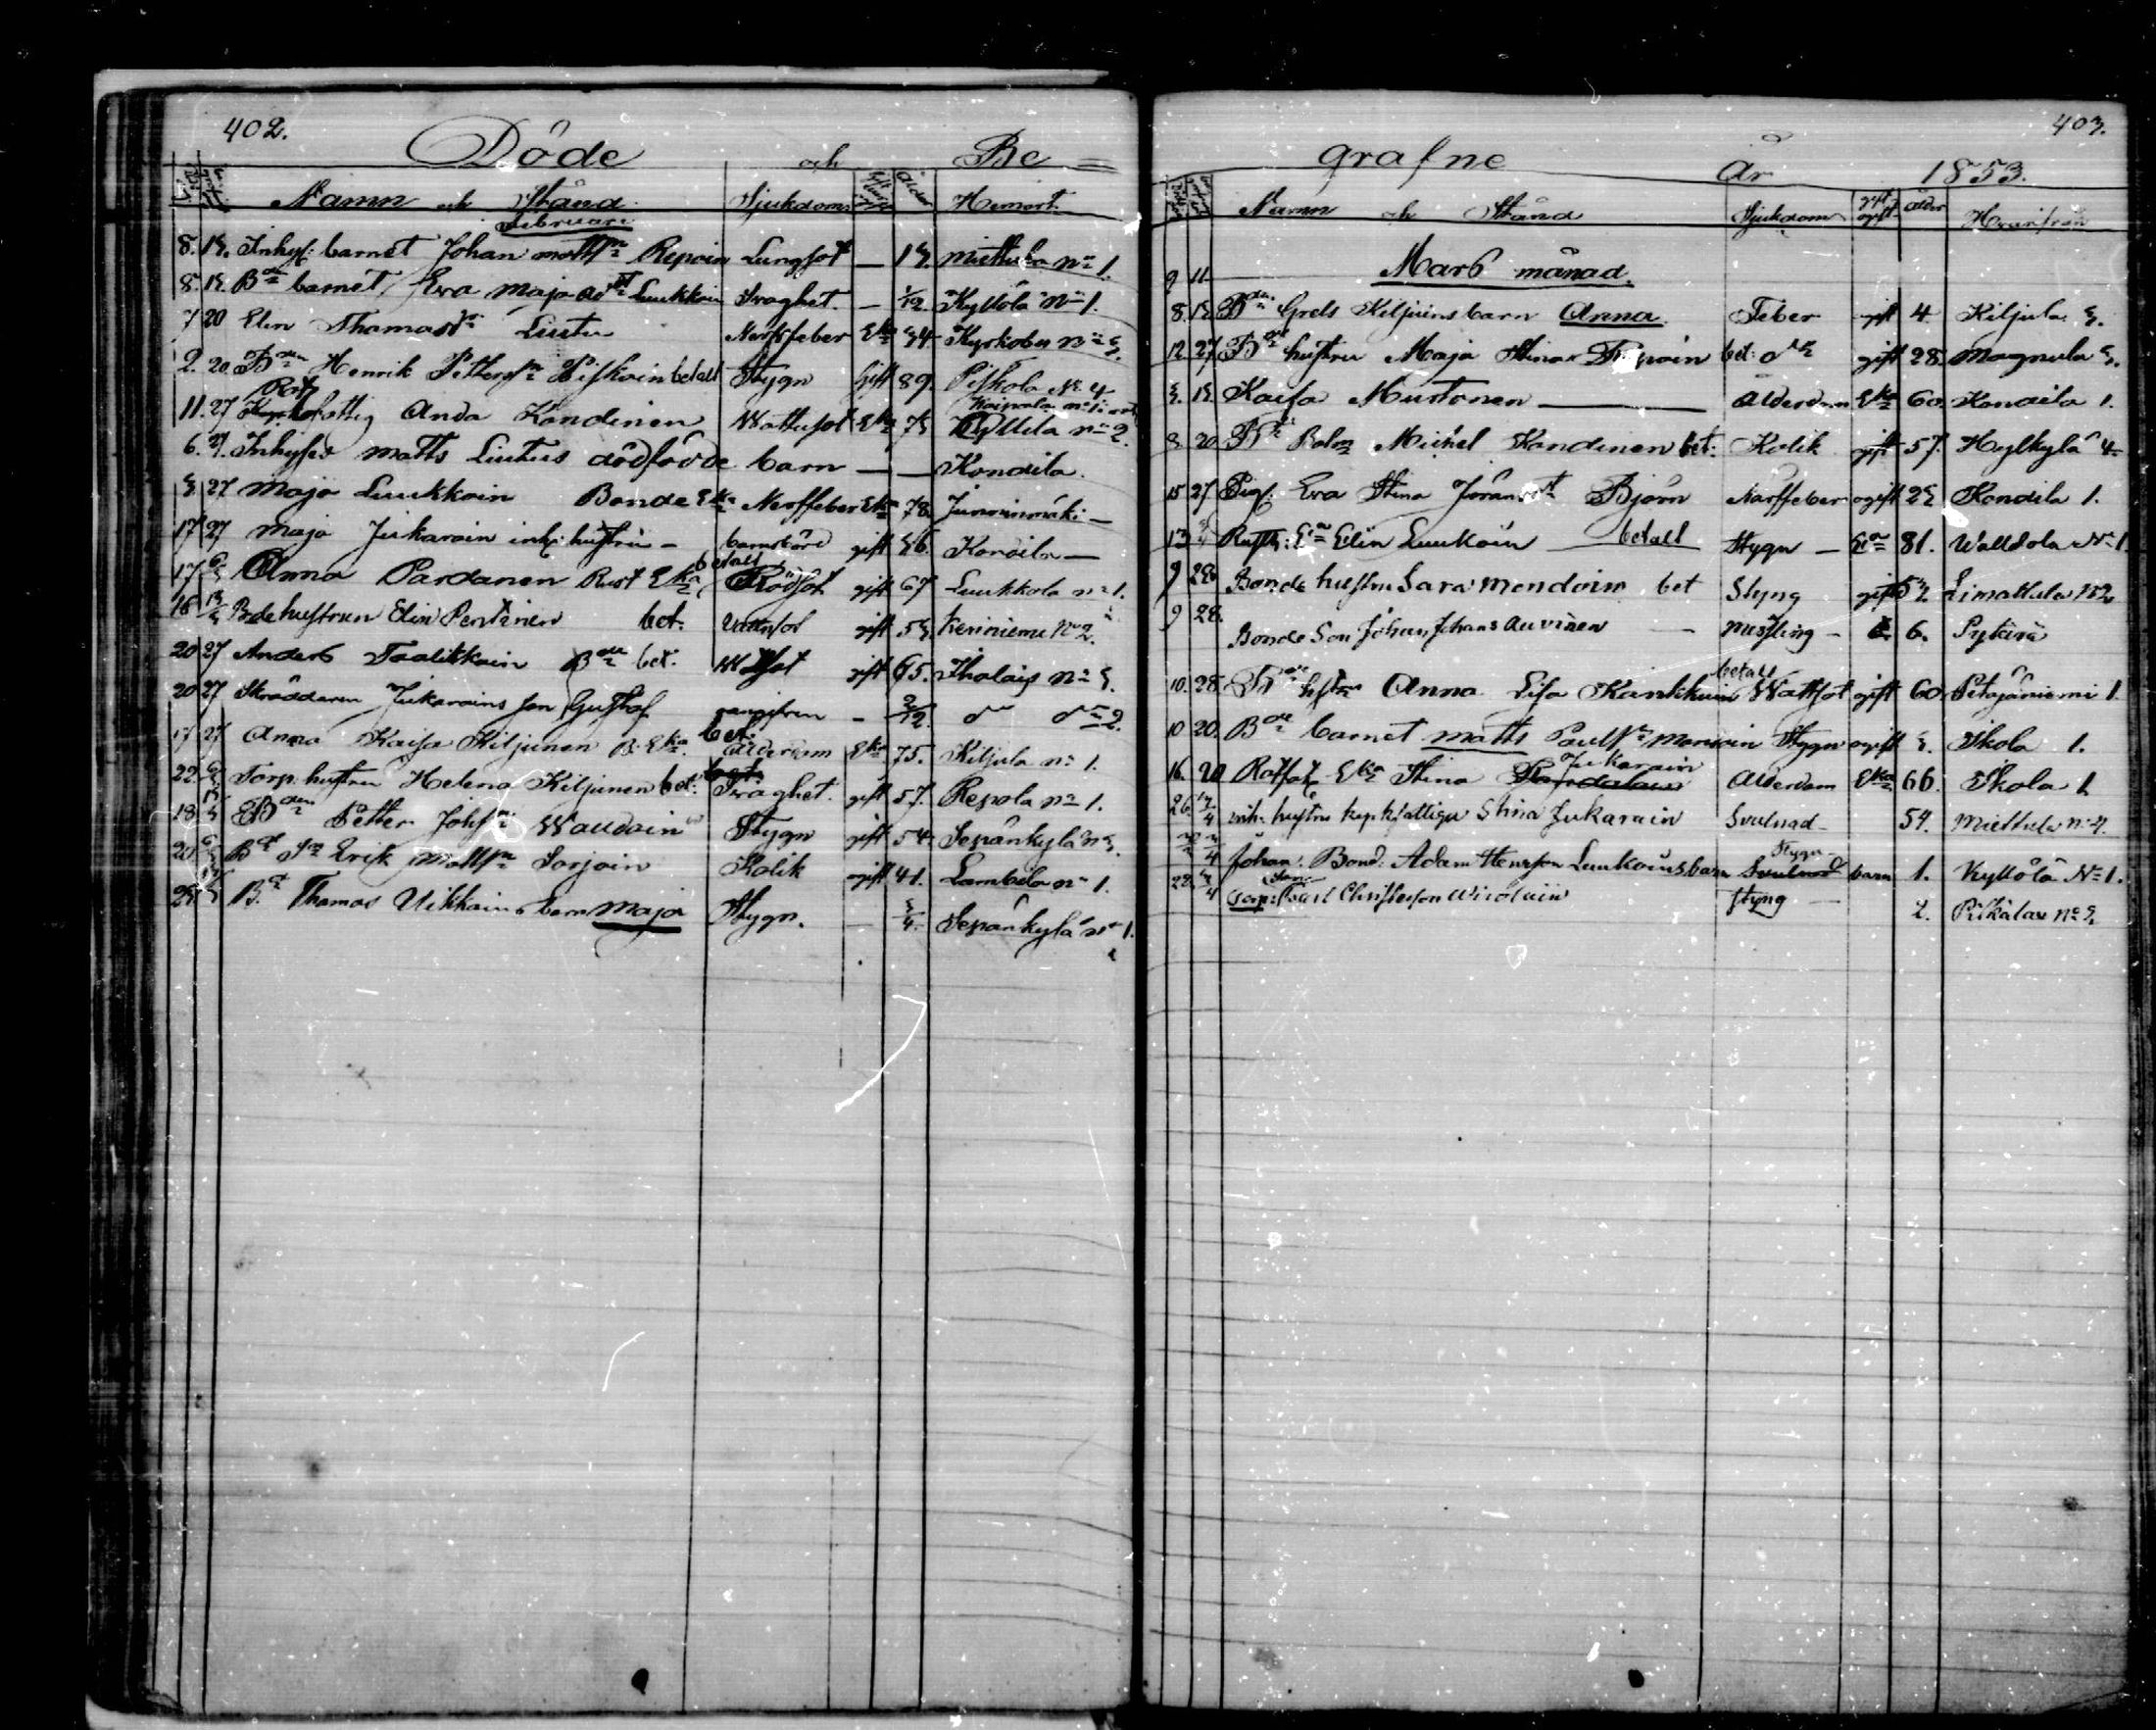 402.
Döde och Be =
Namn och Stånd Sjukdom Ålder Hemort
Februari
8. 13. Inhys: barnet Johan Mattsn Repoin Lungsot — 13. Miettula No 1.
8. 13. Bde barnet Eva Maja Addt Luukkain Svaghet. — 1/12. Kyllölä No 1.
7 20 Elin Thomasdr Liutu Nerffeber Eka 34 Kyrkoby No 3.
2. 20. Bden Henrik Pettersn Piskoin betalt Stygn Gift 89. Piskola No 4.
Rot Kaipola No 1.
11. 27 fattig Anda Kondinen Wattusot Eka 73 Kyllila No 2.
6. 27. Inhyses Matts Liutus dödfödde barn — — Kondila.
3 27 Maja Luukkain Bonde Eka Nerffeber Eka 78. Junninmäki —
17 27 Maja Jukarain inh: hustru — barnsbörd gift 36. Kondila —
betalt
17 6/3 Anna Pardanen Rust Eka Rödsot gift 67 Luukkola No 1.
16 13/3 Bde hustrun Elin Pentinen bet. Vattusot gift 53. Keriniemi No 2.
20 27 Anders Taalikkain Bde bet. Wattsot gift 65. Iholais No 3.
20 27 Skräddaren Jukarains son Gustaf — 2/12. do do 2.
17 27 Anna Kaisa Kiljunen B. Eka. bet. Ålderdom Eka 75. Kiljula No 1.
22. 6/3 Torp: hustrun Helena Kiljunen bet: Svaghet. gift 57. Repola No 1.
18 13/3 Bden Petter Johsn Waudoin Stygn gift 54. Sepänkylä No 3.
20 6/3 Bde Sn Erik Mattsn Sorjoin Kolik gift 41. Lambila No 1.
23 B. Thomas Ukkains barn Maja Stygn. — 3/4. Sepänkylä No 1.
403.
grafne År 1853.
Namn och Stånd Sjukdom gift ogift ålder Hvarifrån
9 11 Mars månad.
8. 13 Bden Grels Kiljuins barn Anna Feber gift 4. Kiljula 3.
12. 27 Bde hustru Maja Stina bet: do gift 28. Magnula 3.
3. 13 Kaisa Mustonen — Ålderdom Eka 60. Kondila 1.
8 20 Michel Kondinen bet: Kolik gift 57. Hylkylä 4.
15 27 Pig: Eva Stina Jöransdt Björn Narffeber ogift 23 Kondila 1.
13 Rusth: Ean Elin Luukoin betalt Stygn — Ean 81. Walldola No 1
9 28. Bonde hustru Sara Mondoin bet Styng gift Limattala No 2
9 28. Bonde Son Johan Johans Auvinen — Mäsling — 6. Pytärä
betalt
10. 28. Bde hstru Anna Lisa Kankkuin Wattsot gift 60 Petäjäniemi 1.
10 20. Bde barnet Matts Paulsn Monoin Stygn ogift 3. Ikola 1.
Jukarain
16. 20 Eka Stina Ålderdom Eka 66. Ikola 1.
26. 17/4 inh: hustru kyrkfattiga Stina Jukarain Svulnad — 54. Miettula No 2.
Stygn —
Johan: Bond: Adam Henrson Luukoins barn Svulnad barn 1. Kyllölä No 1.
Son
28. /4 Torp: Påvel Christerson Wirolain Styng — 2. Pitkälax No 3.